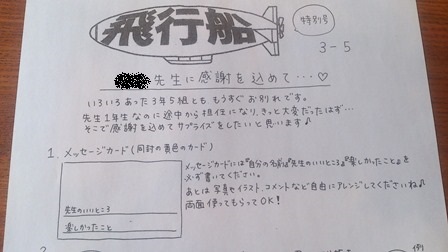 飛行船
特別号
3-5
先生に感謝を込めて…♡
いろいろあった3年5組とも もうすぐお別れです。
先生1年生なのに途中から担任になり、きっと大変だったはず…
そこで感謝を込めてサプライズをしたいと思います♪
1. メッセージカード(同封の黄色のカード)
先生のいいところ
楽しかったこと
メッセージカードには『自分の名前』『先生のいいところ』『楽しかったこと』を
必ず書いてください。
あとは写真やイラスト、コメントなど自由にアレンジしてくださいね♪
両面使ってもらってOK!
例